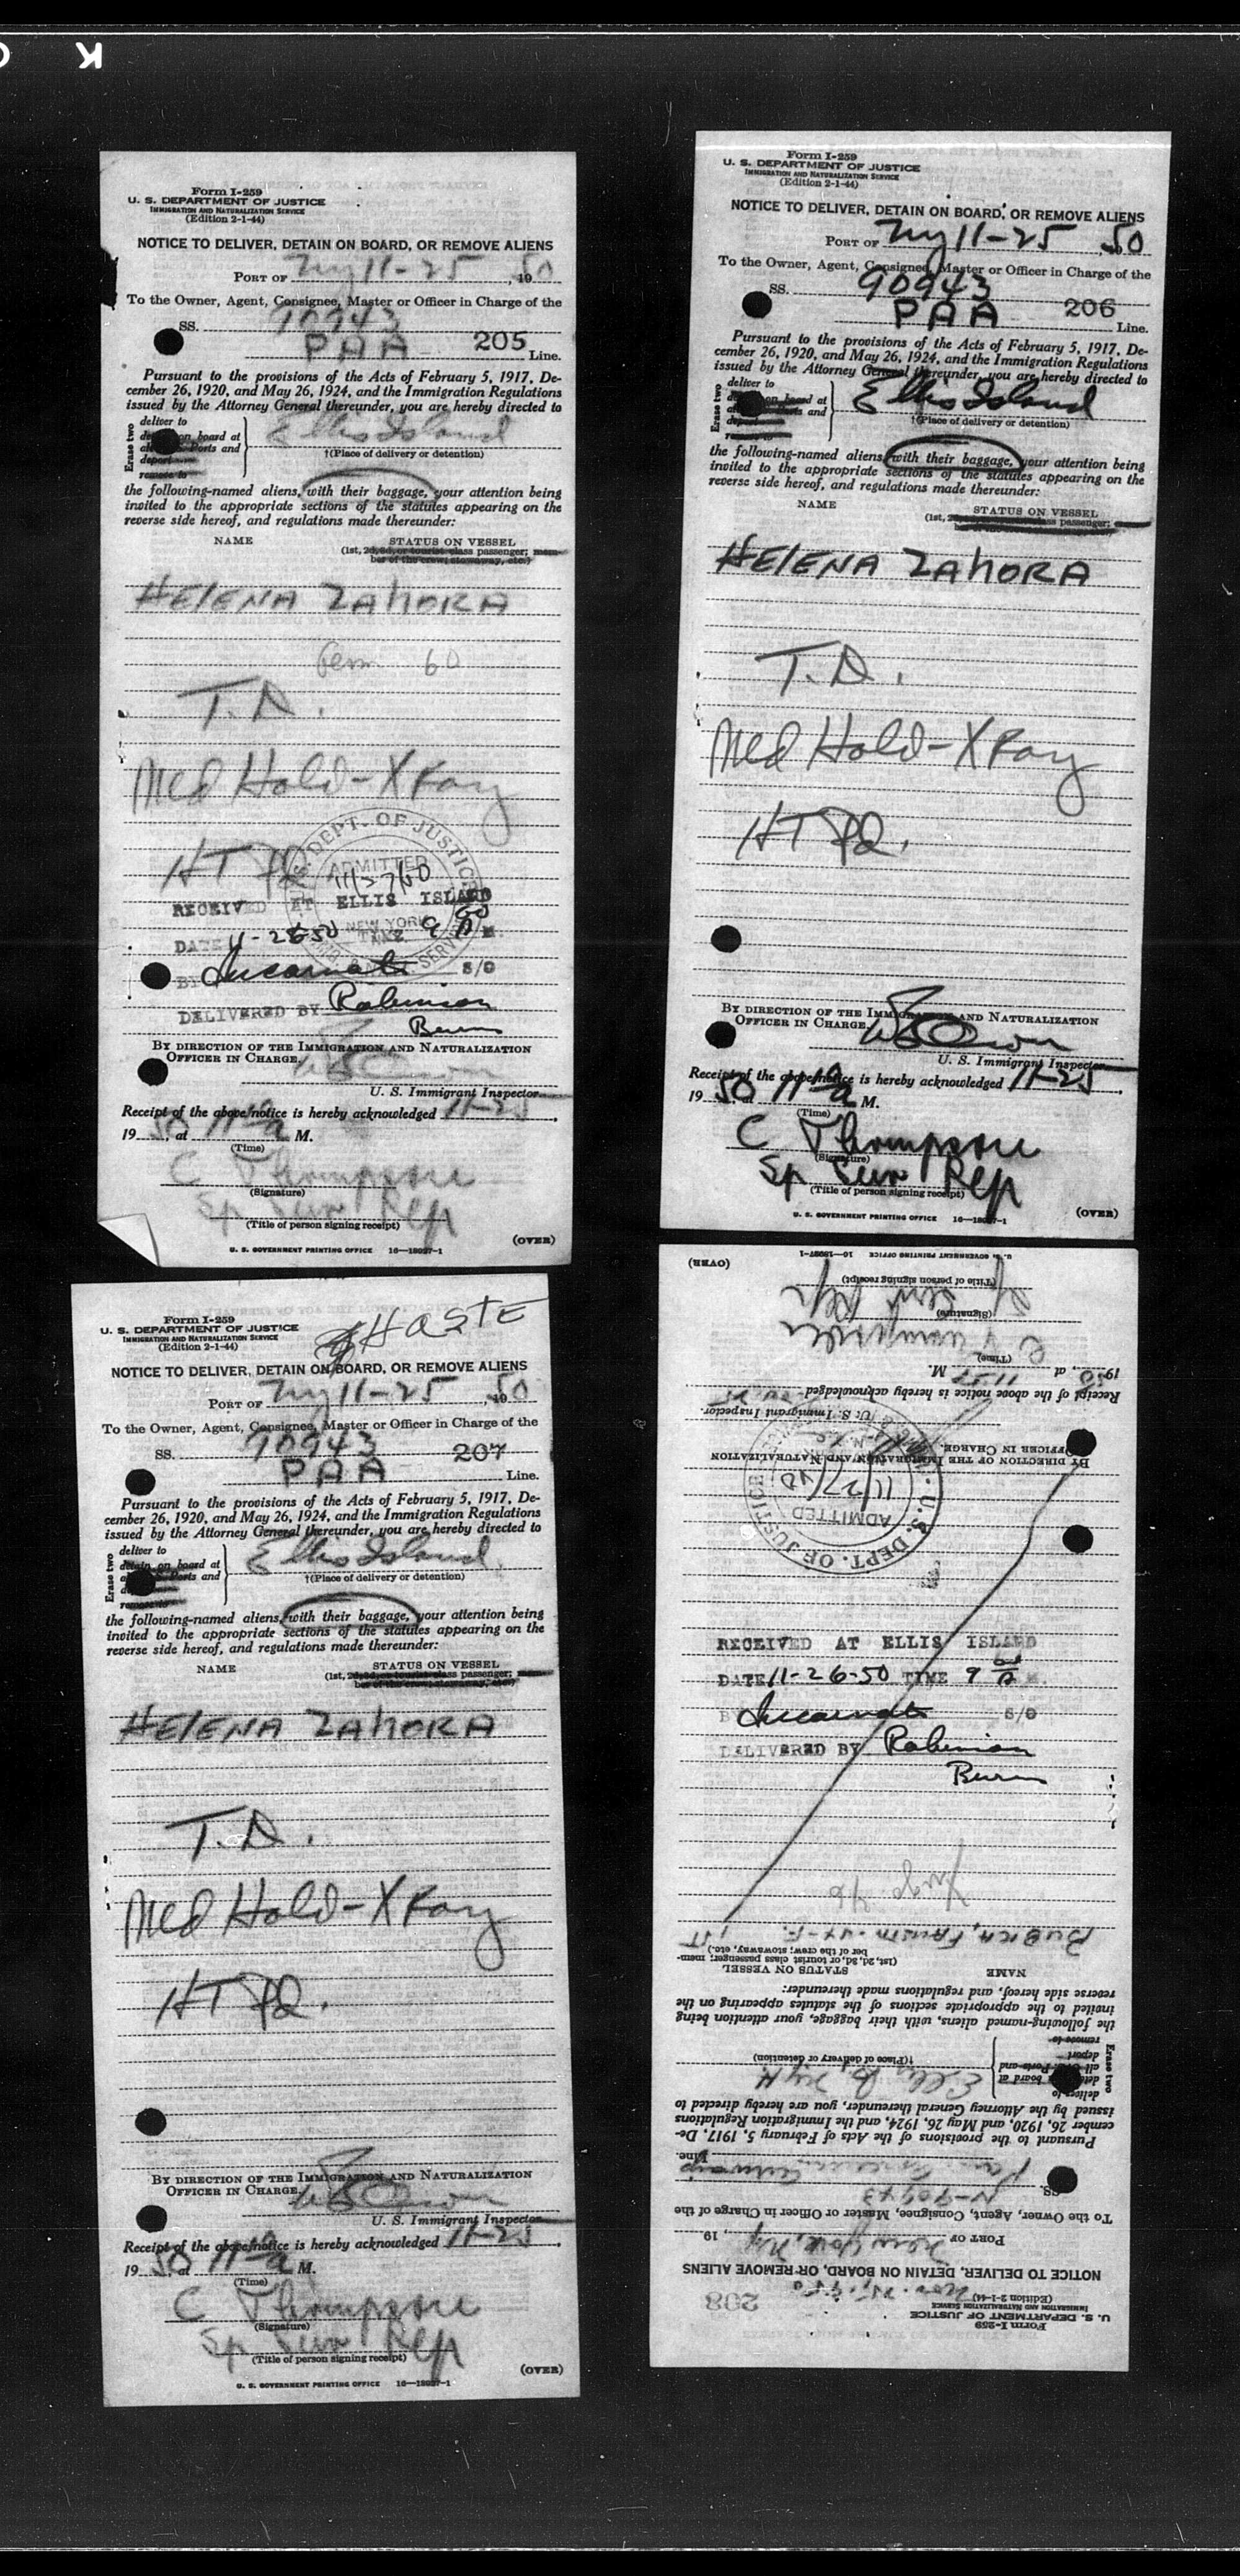 K
Form I-259
U. S. DEPARTMENT OF JUSTICE
IMMIGRATION AND NATURALIZATION SERVICE
(Edition 2-1-44)
NOTICE TO DELIVER, DETAIN ON BOARD, OR REMOVE ALIENS
PORT OF NY 11-25, 1950
To the Owner, Agent, Consignee, Master or Officer in Charge of the
SS. 90943
PAA 205 Line.
Pursuant to the provisions of the Acts of February 5, 1917, De-
cember 26, 1920, and May 26, 1924, and the Immigration Regulations
issued by the Attorney General thereunder, you are hereby directed to
Erase two
deliver to
on board at
Ports and
deport
remove to
Ellis Island
†(Place of delivery or detention)
the following-named aliens, with their baggage, your attention being
invited to the appropriate sections of the statutes appearing on the
reverse side hereof, and regulations made thereunder:
NAME STATUS ON VESSEL
(1st, 2d, 3d, or tourist class passenger; mem-
ber of the crew; stowaway, etc.)
HELENA ZAHORA
60
T.D.
Med Hold - X Ray
HT
U.S. DEPT. OF JUSTICE
ADMITTED
NEW YORK
RECEIVED AT ELLIS ISLAND
DATE 11-26-50 TIME 9 00 A M.
BY S/O
DELIVERED BY Robinson
Burns
BY DIRECTION OF THE IMMIGRATION AND NATURALIZATION
OFFICER IN CHARGE.
U. S. Immigrant Inspector.
Receipt of the above notice is hereby acknowledged 11-25,
1950, at 11 a M.
(Time)
C Thompson
(Signature)
Sp Serv Rep
(Title of person signing receipt)
(OVER)
U. S. GOVERNMENT PRINTING OFFICE 16—18027-1
Form I-259
U. S. DEPARTMENT OF JUSTICE
IMMIGRATION AND NATURALIZATION SERVICE
(Edition 2-1-44)
NOTICE TO DELIVER, DETAIN ON BOARD, OR REMOVE ALIENS
PORT OF NY 11-25, 50
To the Owner, Agent, Consignee, Master or Officer in Charge of the
SS. 90943
PAA 206 Line.
Pursuant to the provisions of the Acts of February 5, 1917, De-
cember 26, 1920, and May 26, 1924, and the Immigration Regulations
issued by the Attorney General thereunder, you are hereby directed to
Erase two
deliver to
on board at
Ports and
deport
remove to
Ellis Island
†(Place of delivery or detention)
the following-named aliens, with their baggage, your attention being
invited to the appropriate sections of the statutes appearing on the
reverse side hereof, and regulations made thereunder:
NAME STATUS ON VESSEL
(1st, class passenger;
HELENA ZAHORA
T.D.
Med Hold - X Ray
HT
BY DIRECTION OF THE IMMIGRATION AND NATURALIZATION
OFFICER IN CHARGE.
U. S. Immigrant Inspector.
Receipt of the above notice is hereby acknowledged 11-25
1950, at 11 a M.
(Time)
C Thompson
(Signature)
Sp Serv Rep
(Title of person signing receipt)
(OVER)
U. S. GOVERNMENT PRINTING OFFICE 16—18027-1
HASTE
Form I-259
U. S. DEPARTMENT OF JUSTICE
IMMIGRATION AND NATURALIZATION SERVICE
(Edition 2-1-44)
NOTICE TO DELIVER, DETAIN ON BOARD, OR REMOVE ALIENS
PORT OF NY 11-25, 1950
To the Owner, Agent, Consignee, Master or Officer in Charge of the
SS. 90943
PAA 207 Line.
Pursuant to the provisions of the Acts of February 5, 1917, De-
cember 26, 1920, and May 26, 1924, and the Immigration Regulations
issued by the Attorney General thereunder, you are hereby directed to
Erase two
deliver to
detain on board at
Ports and
remove to
Ellis Island
†(Place of delivery or detention)
the following-named aliens, with their baggage, your attention being
invited to the appropriate sections of the statutes appearing on the
reverse side hereof, and regulations made thereunder:
NAME STATUS ON VESSEL
(1st, 2d, 3d, or tourist class passenger; mem-
ber of the crew; stowaway, etc.)
HELENA ZAHORA
T.D.
Med Hold - X Ray
HT
BY DIRECTION OF THE IMMIGRATION AND NATURALIZATION
OFFICER IN CHARGE.
U. S. Immigrant Inspector.
Receipt of the above notice is hereby acknowledged 11-25
1950, at 11 a M.
(Time)
C Thompson
(Signature)
Sp Serv Rep
(Title of person signing receipt)
(OVER)
U. S. GOVERNMENT PRINTING OFFICE 16—18027-1
Form I-259
U. S. DEPARTMENT OF JUSTICE
IMMIGRATION AND NATURALIZATION SERVICE
(Edition 2-1-44)
208
Nov. 25, 1950
NOTICE TO DELIVER, DETAIN ON BOARD, OR REMOVE ALIENS
PORT OF New York, NY, 19
To the Owner, Agent, Consignee, Master or Officer in Charge of the
SS. N-90943
Pan American Airways Line.
Pursuant to the provisions of the Acts of February 5, 1917, De-
cember 26, 1920, and May 26, 1924, and the Immigration Regulations
issued by the Attorney General thereunder, you are hereby directed to
Erase two
deliver to
board at
all Ports and
deport
remove to
Ellis Is NYH
†(Place of delivery or detention)
the following-named aliens, with their baggage, your attention being
invited to the appropriate sections of the statutes appearing on the
reverse side hereof, and regulations made thereunder:
NAME STATUS ON VESSEL
(1st, 2d, 3d, or tourist class passenger; mem-
ber of the crew; stowaway, etc.)
RECEIVED AT ELLIS ISLAND
DATE 11-26-50 TIME 9 A M.
BY S/O
DELIVERED BY Robinson
Burns
U. S. DEPT. OF JUSTICE
ADMITTED
11/27/50
BY DIRECTION OF THE IMMIGRATION AND NATURALIZATION
OFFICER IN CHARGE.
U. S. Immigrant Inspector.
Receipt of the above notice is hereby acknowledged
1950, at M.
(Time)
(Signature)
(Title of person signing receipt)
(OVER)
U. S. GOVERNMENT PRINTING OFFICE 16—18027-1